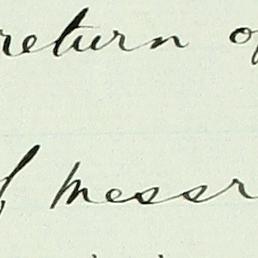 return of
f Messr